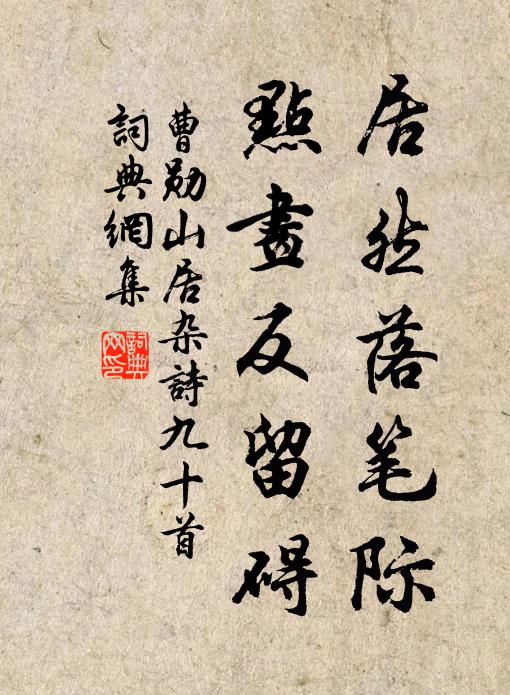 居然落笔际
點畫反留碍
曹勋山居杂詩九十首
詞典網集
詞典网印